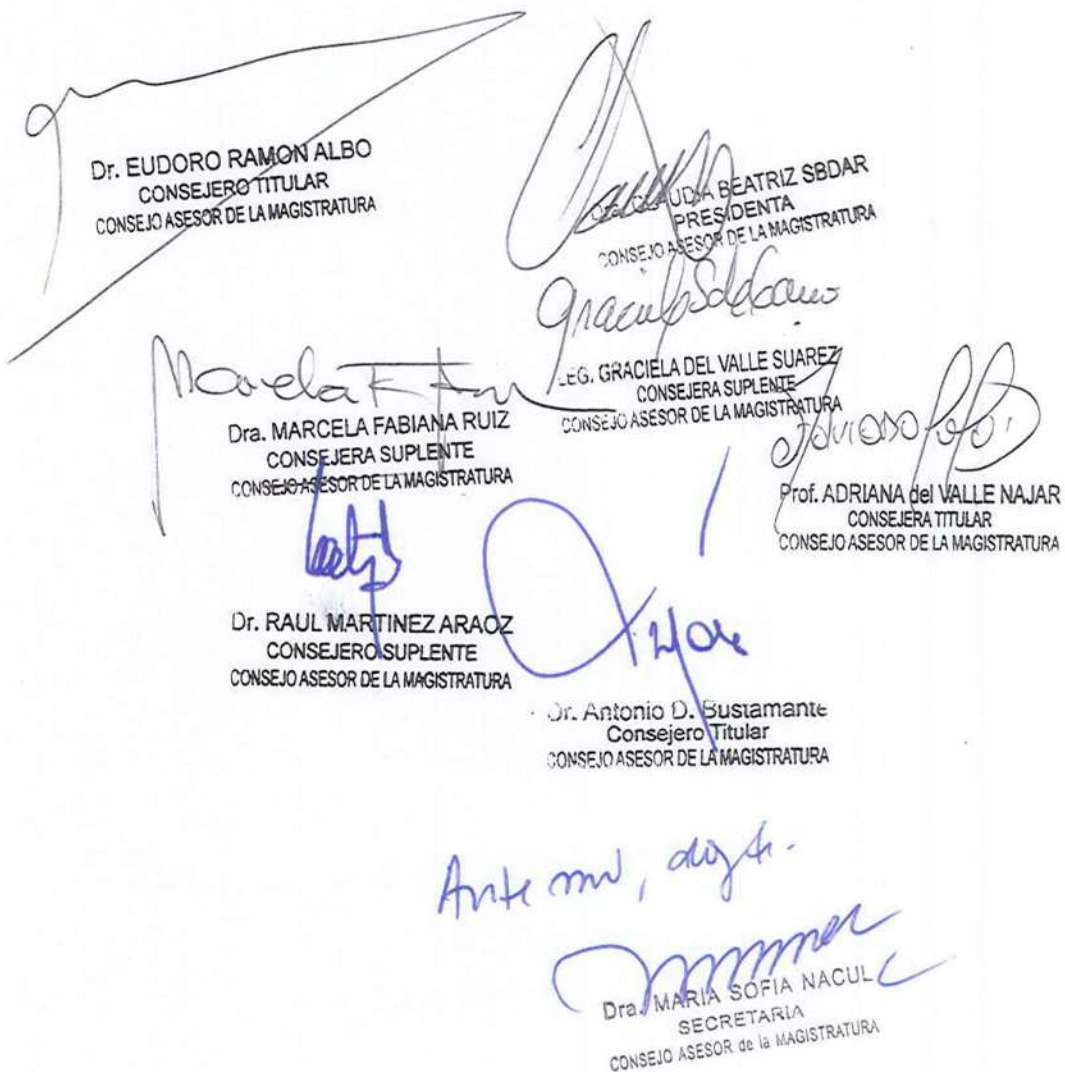 Dr. EUDORO RAMON ALBO
CONSEJERO TITULAR
CONSEJO ASESOR DE LA MAGISTRATURA
CLAUDIA BEATRIZ SBDAR
PRESIDENTA
CONSEJO ASESOR DE LA MAGISTRATURA
LEG. GRACIELA DEL VALLE SUAREZ
CONSEJERA SUPLENTE
CONSEJO ASESOR DE LA MAGISTRATURA
Marcela
Dra. MARCELA FABIANA RUIZ
CONSEJERA SUPLENTE
CONSEJO ASESOR DE LA MAGISTRATURA
Prof. ADRIANA del VALLE NAJAR
CONSEJERA TITULAR
CONSEJO ASESOR DE LA MAGISTRATURA
Dr. RAUL MARTINEZ ARAOZ
CONSEJERO SUPLENTE
CONSEJO ASESOR DE LA MAGISTRATURA
Dr. Antonio D. Bustamante
Consejero Titular
CONSEJO ASESOR DE LA MAGISTRATURA
Ante mi, doy fe.
Dra. MARIA SOFIA NACUL
SECRETARIA
CONSEJO ASESOR de la MAGISTRATURA